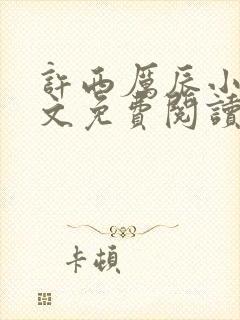 許西厲辰小
文免費閱讀
卡頓